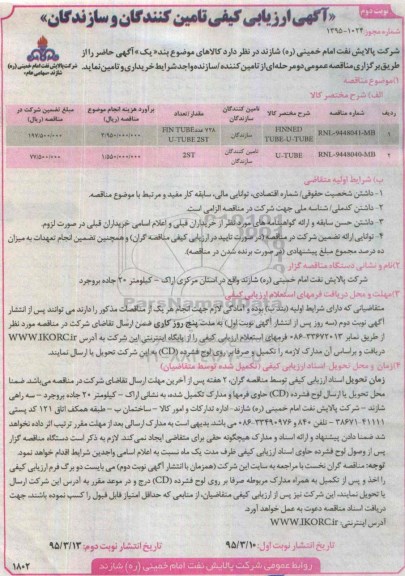 نوبت دوم
«آگهی ارزیابی کیفی تامین کنندگان و سازندگان»
شماره مجوز ۱۰۲۴-۱۳۹۵
شرکت پالایش نفت امام خمینی (ره) شازند در نظر دارد کالاهای موضوع بند «یک» آگهی حاضر را از
طریق برگزاری مناقصه عمومی دو مرحله ای از تامین کننده/سازنده واجد شرایط خریداری و تامین نماید.
شرکت پالایش نفت امام خمینی (ره)
شازند (سهامی عام)
۱)موضوع مناقصه
الف) شرح مختصر کالا
ردیف شماره مناقصه شرح مختصر کالا تامین کنندگان سازندگان مقدار/تعداد برآورد هزینه انجام موضوع مناقصه (ریال) مبلغ تضمین شرکت در مناقصه (ریال)
۱ RNL-9448041-MB FINNED TUBE-U-TUBE سازندگان ۷۲۸ عدد FIN TUBE U-TUBE 2ST ۳/۹۵۰/۰۰۰/۰۰۰ ۱۹۷/۵۰۰/۰۰۰
۲ RNL-9448040-MB U-TUBE تامین کنندگان سازندگان 2ST ۱/۵۵۰/۰۰۰/۰۰۰ ۷۷/۵۰۰/۰۰۰
ب) شرایط اولیه متقاضی
۱- داشتن شخصیت حقوقی/ شماره اقتصادی، توانایی مالی، سابقه کار مفید و مرتبط با موضوع مناقصه.
۲- داشتن کدملی/ شناسه ملی جهت شرکت در مناقصه الزامی است.
۳- داشتن حسن سابقه و ارائه گواهینامه های مورد نظر از خریداران قبلی و اعلام اسامی خریداران قبلی در صورت لزوم.
۴- توانایی ارائه تضمین شرکت در مناقصه (در صورت تایید در ارزیابی کیفی مناقصه گران) و همچنین تضمین انجام تعهدات به میزان
ده درصد مجموع مبلغ پیشنهادی (در صورت برنده شدن در مناقصه).
۲)نام و نشانی دستگاه مناقصه گزار
شرکت پالایش نفت امام خمینی (ره) شازند واقع در استان مرکزی اراک - کیلومتر ۲۰ جاده بروجرد
۳)مهلت و محل دریافت فرمهای استعلام ارزیابی کیفی
متقاضیانی که دارای شرایط اولیه (بند ب) بوده و آمادگی لازم جهت انجام هر یک از مناقصات مذکور را دارند می توانند پس از انتشار
آگهی نوبت دوم (سه روز پس از انتشار آگهی نوبت اول) به مدت پنج روز کاری ضمن ارسال تقاضای شرکت در مناقصه مورد نظر
از طریق نمابر ۳۳۶۷۲۰۱۳-۰۸۶ فرمهای استعلام ارزیابی کیفی را از پایگاه اینترنتی این شرکت به آدرس WWW.IKORC.ir
دریافت و براساس آن مدارک لازمه را تکمیل و صرفا بر روی لوح فشرده (CD) به این شرکت تحویل یا ارسال نمایند.
۴)زمان و محل تحویل اسناد ارزیابی کیفی (تکمیل شده توسط متقاضیان)
زمان تحویل اسناد ارزیابی کیفی توسط مناقصه گران، ۲ هفته پس از آخرین مهلت ارسال تقاضای شرکت در مناقصه می باشد. ضمنا
محل تحویل یا ارسال لوح فشرده (CD) حاوی فرمها و مدارک تکمیل شده، به نشانی اراک - کیلومتر ۲۰ جاده بروجرد - سه راهی
شازند - شرکت پالایش نفت امام خمینی (ره) شازند- اداره تدارکات و امور کالا - ساختمان ب - طبقه همکف اتاق ۱۲۱ کد پستی
۳۸۶۷۱۴۱۱۱۱ - تلفن ۸۴۰ و ۳۳۴۹۰۹۷۶-۰۸۶ می باشد. بدیهی است به مدارک ارسالی بعد از مهلت مقرر ترتیب اثر داده نخواهد
شد ضمنا دادن پیشنهاد و ارائه اسناد و مدارک هیچگونه حقی برای متقاضی ایجاد نمی کند. لازم به ذکر است دستگاه مناقصه گزار
پس از وصول لوح فشرده حاوی اسناد ارزیابی کیفی ظرف مدت یک ماه نسبت به اعلام اسامی واجدین شرایط اقدام خواهد نمود.
توجه: مناقصه گران نخست با مراجعه به سایت این شرکت (همزمان با انتشار آگهی نوبت دوم) می بایست دو برگ فرم ارزیابی کیفی
را اخذ و پس از تکمیل به همراه مدارک مربوطه صرفا بر روی لوح فشرده (CD) درج و در موعد مقرر به آدرس این شرکت ارسال
یا تحویل نمایند، این شرکت نیز پس از ارزیابی کیفی متقاضیان، از منابعی که حداقل امتیاز قابل قبول را کسب نموده باشند، جهت
دریافت اسناد مناقصه دعوت به عمل خواهد آورد.
آدرس اینترنتی: WWW.IKORC.ir
تاریخ انتشار نوبت اول: ۹۵/۳/۱۰ تاریخ انتشار نوبت دوم: ۹۵/۳/۱۳
روابط عمومی شرکت پالایش نفت امام خمینی (ره) شازند
۱۸۰۲